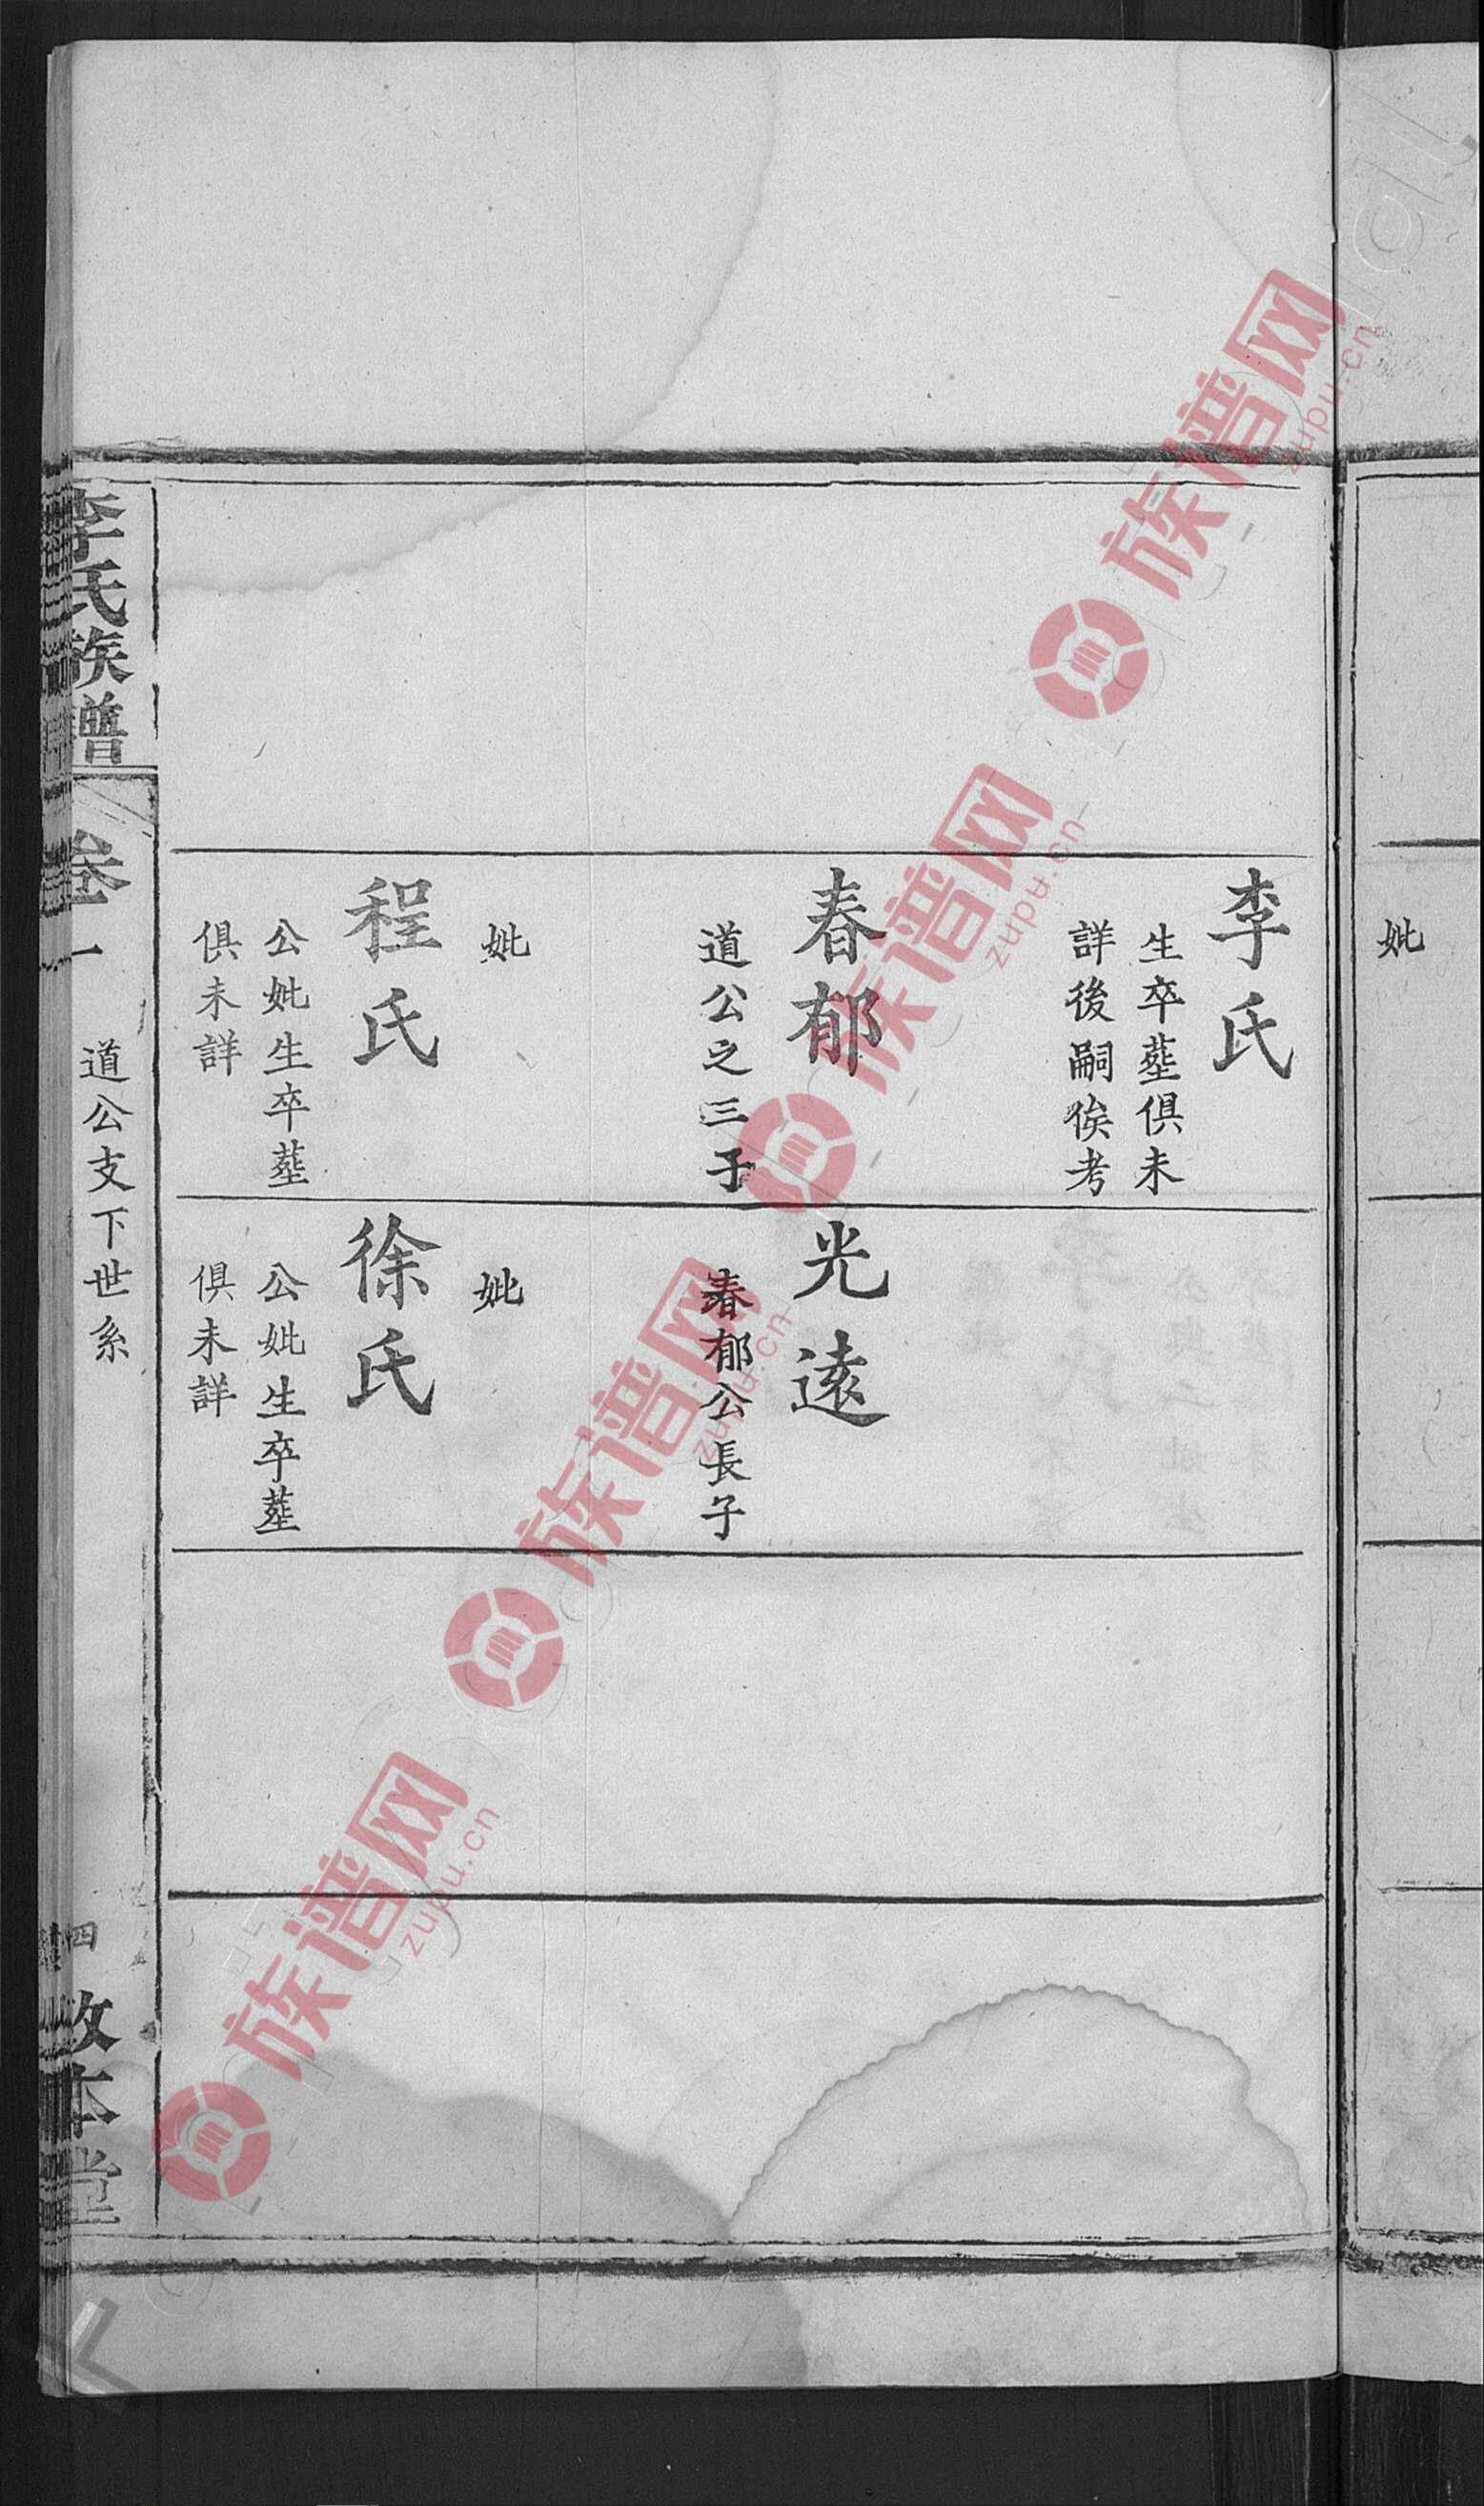 妣
李氏
生卒塟俱未
詳後嗣俟考
春郁
道公之三子
妣
程氏
公妣生卒塟
俱未詳
光遠
春郁公長子
妣
徐氏
公妣生卒塟
俱未詳
李氏族譜
卷一
道公支下世系
四
敦本堂
族谱网
zupu.cn
族谱网
zupu.cn
族谱网
zupu.cn
族谱网
zupu.cn